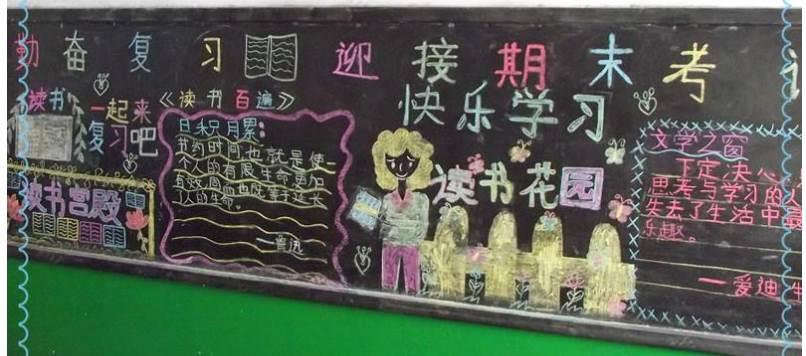 勤奋复习 迎接期末考
快乐学习
读书
一起来
复习吧
读书宫殿
《读书百遍》
日积月累:
节约时间也就是使一
个人的有限生命更加
有效,而也即等于延长
人的生命。
—鲁迅
读书花园
文学之窗
下定决心,
思考与学习的人
失去了生活中最
乐趣。
—爱迪生